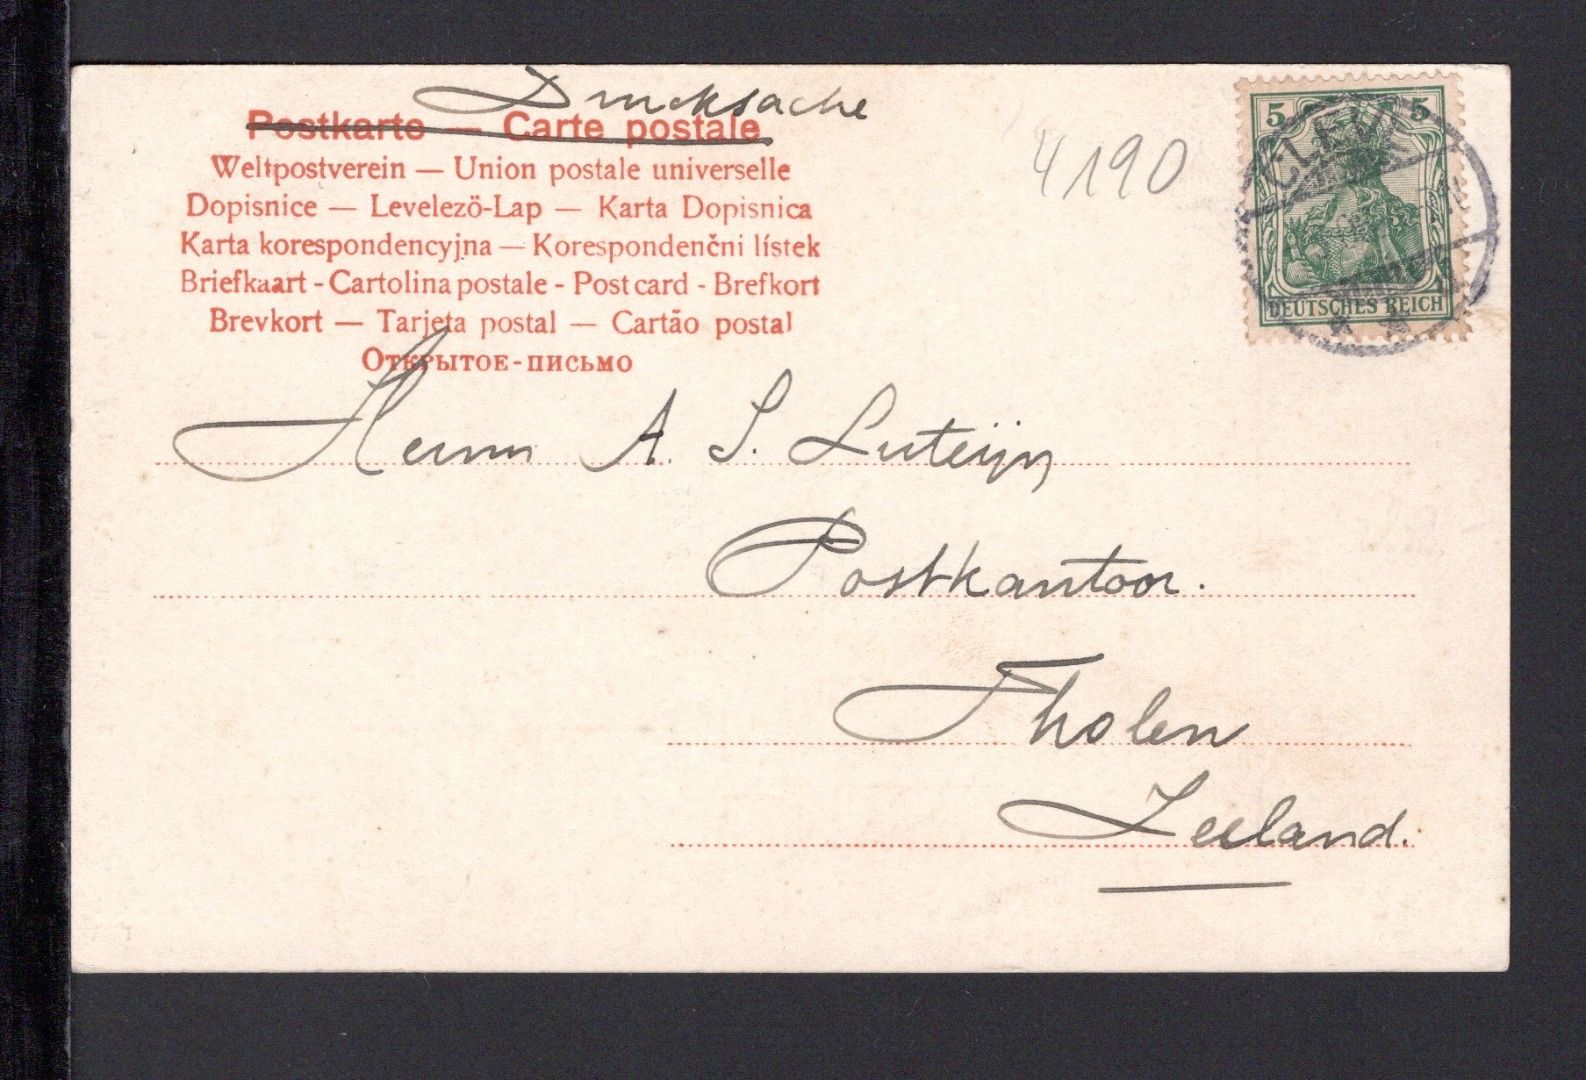 Drucksache
Postkarte — Carte postale
Weltpostverein — Union postale universelle
Dopisnice — Levelezö-Lap — Karta Dopisnica
Karta korespondencyjna — Korespondenčni lístek
Briefkaart - Cartolina postale - Post card - Brefkort
Brevkort — Tarjeta postal — Cartão postal
Открытое-письмо
4190
5 5
CLEVE
DEUTSCHES REICH
Herrn A. S. Luteijn
Postkantoor.
Tholen
Zeeland.